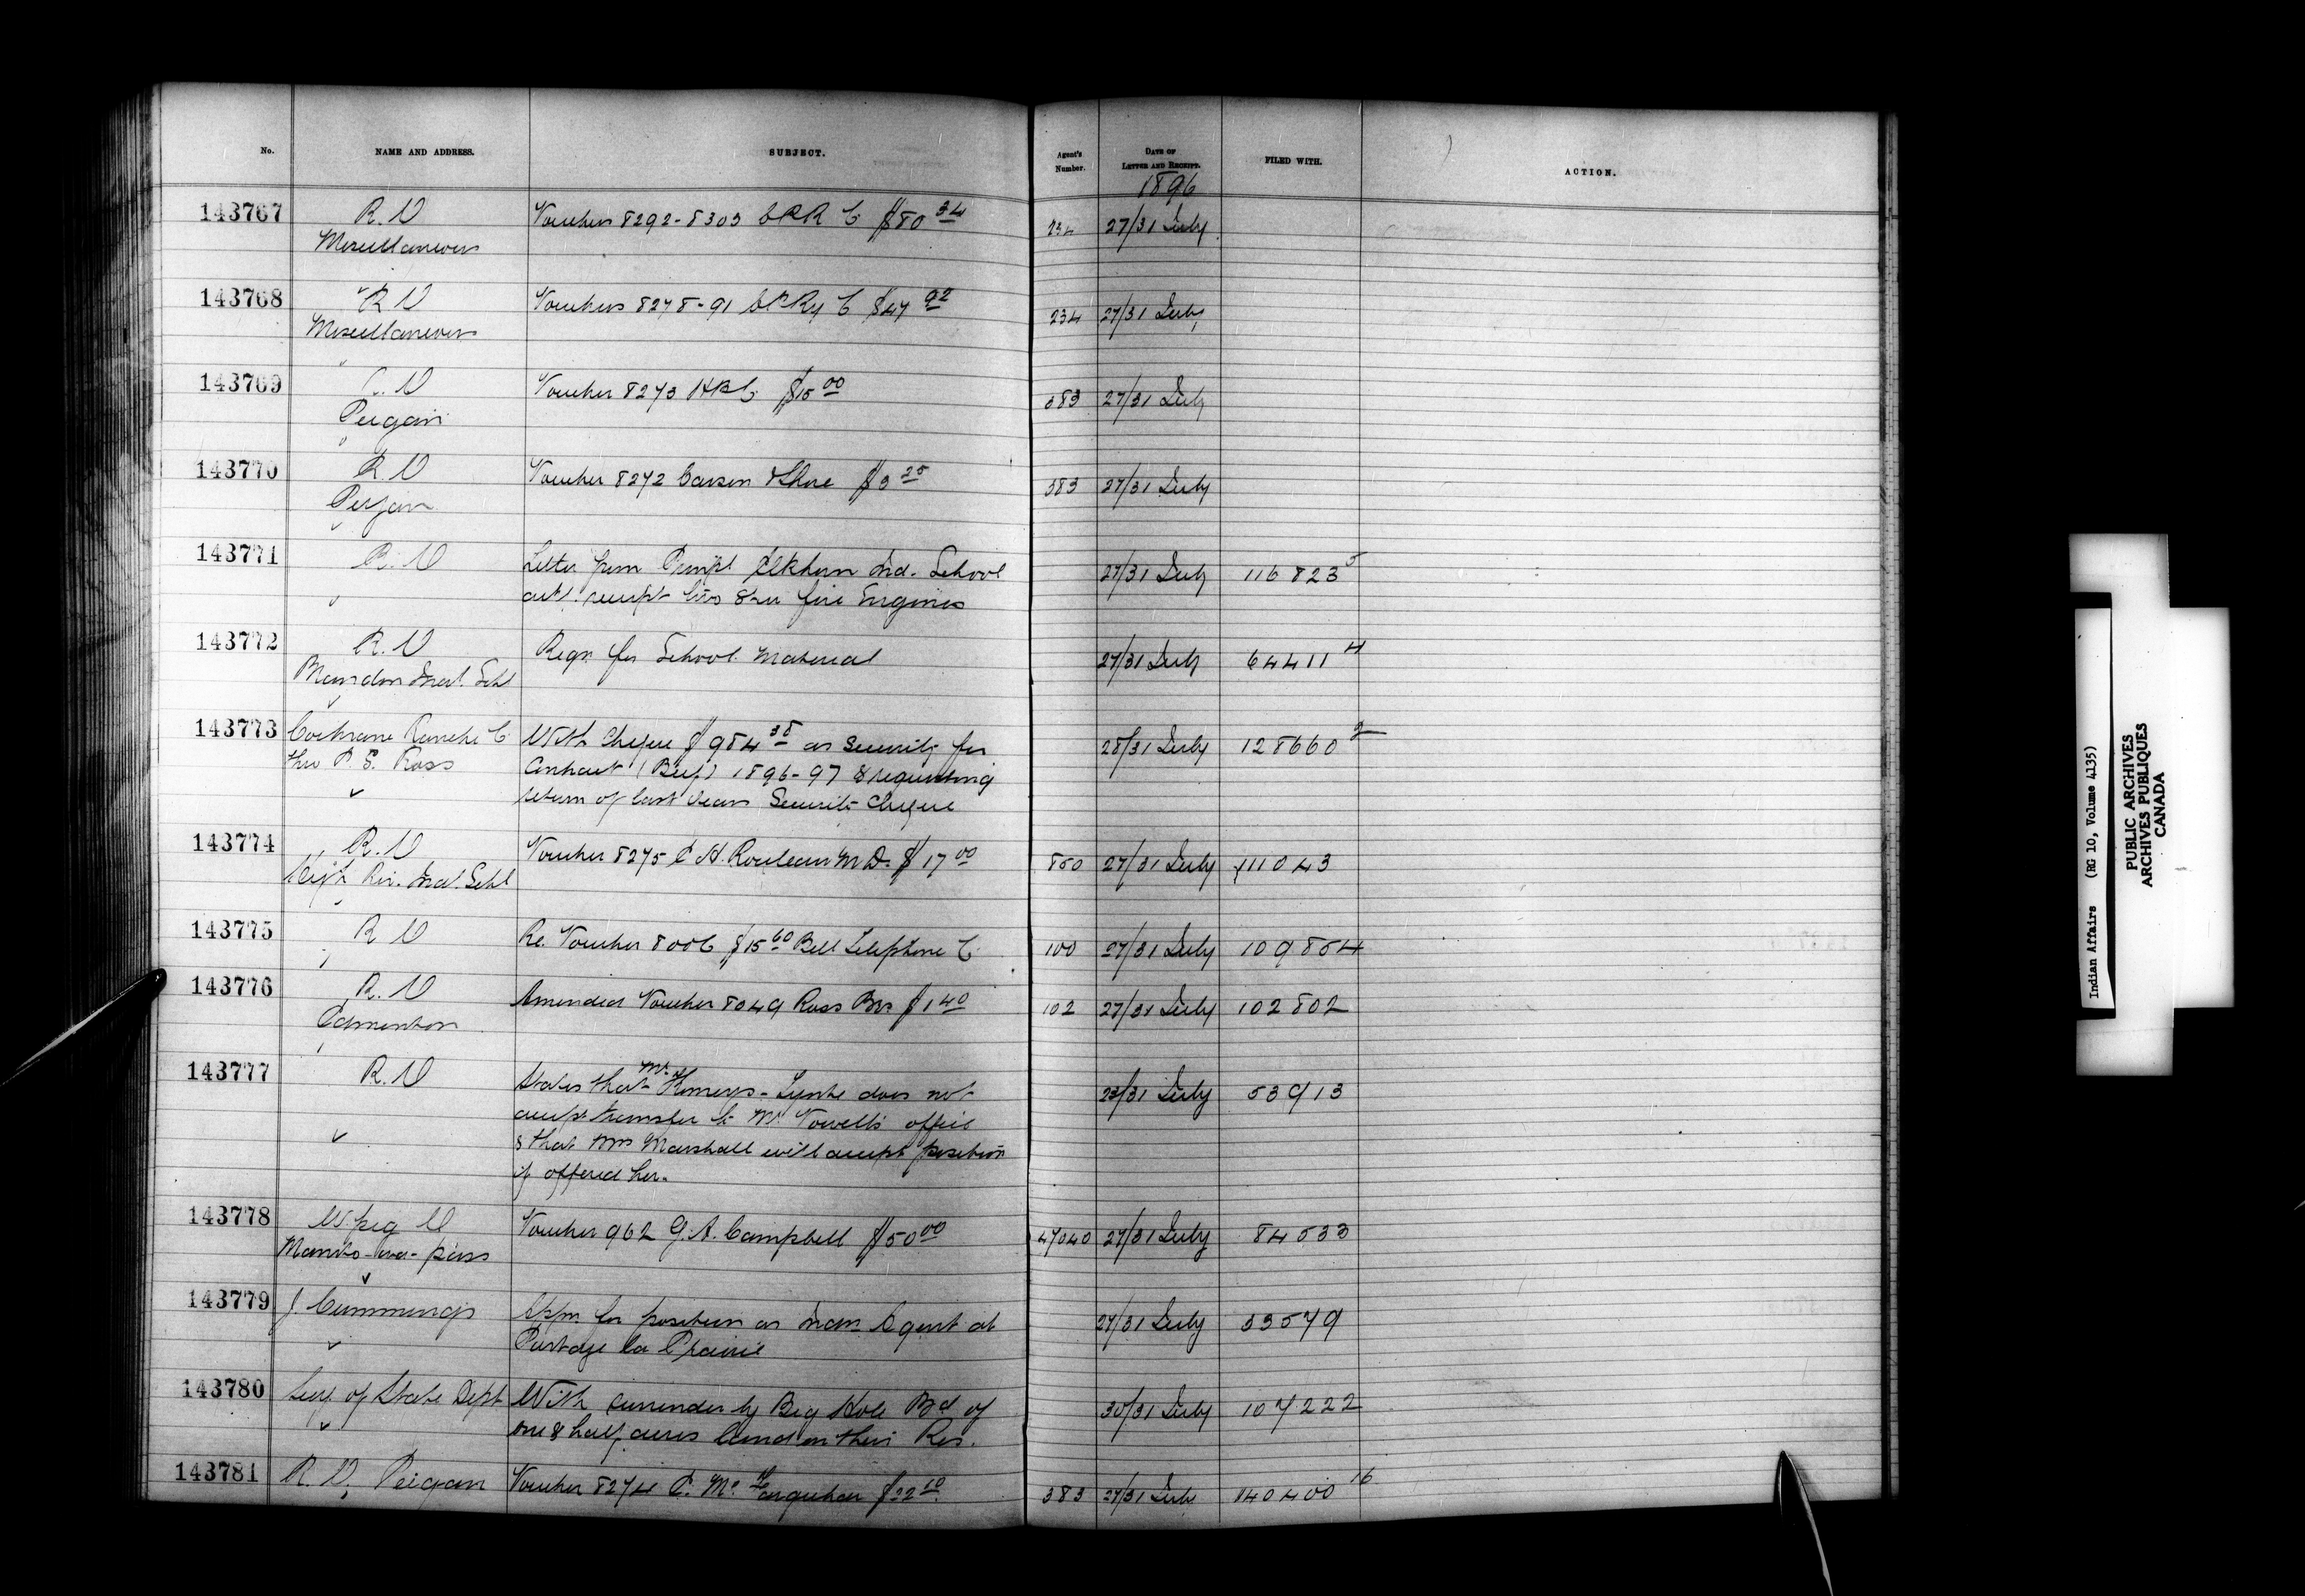 No. NAME AND ADDRESS. SUBJECT. Agent's Number. DATE OF LETTER AND RECEIPT. FILED WITH. ACTION.
1896
143767 R. O Vouchers 8292-8303 C P R Co $80 34 234 27/31 July
Miscellaneous
143768 R O Vouchers 8278-91 C P Ry Co $47 92 234 27/31 July
Miscellaneous
143769 R. O Voucher 8273 H B Co $15 00 383 27/31 July
Peigan
143770 R. O Voucher 8272 Carson & Shore $3 25 383 27/31 July
Peigan
143771 R. O Letter from Principl Elkhorn Ind. School 27/31 July 116823 5
receipt fire Engines
143772 R. O Reqn for School Material 27/31 July 64411 4
Brandon Indl. Schl
143773 Cochrane Ranche Co With Cheque $984 38 as Security for 28/31 July 128660 2
thro P. E. Ross Contract (Beef) 1896-97 & requesting
return of last years Security Cheque
143774 R. O Voucher 8275 E H. Rouleau M D. $17 00 850 27/31 July 111043
High Riv. Ind. Schl
143775 R O Re Voucher 8006 $15 60 Bell Telephone Co 100 27/31 July 109854
143776 R. O Amended Voucher 8049 Ross Bros $1 40 102 27/31 July 102802
Edmonton
143777 R. O States that Mr. does not 23/31 July 53913
accept transfer to Mr. Vowell's office
& that Mrs Marshall will accept position
if offered her.
143778 W.peg O Voucher 962 G. A. Campbell $50 00 47040 27/31 July 84533
Manito-wa-paw
143779 J Cummings Appn for position as Indn Agent at 27/31 July 33579
Portage La Prairie
143780 Secy. of State Dept With surrender by Big Hole Bd of 30/31 July 107222
one & half acres land on their Res.
143781 R. O, Peigan Voucher 8274 Farquhar $22 50 383 27/31 July 140400 16
Indian Affairs (RG 10, Volume 4135)
PUBLIC ARCHIVES
ARCHIVES PUBLIQUES
CANADA